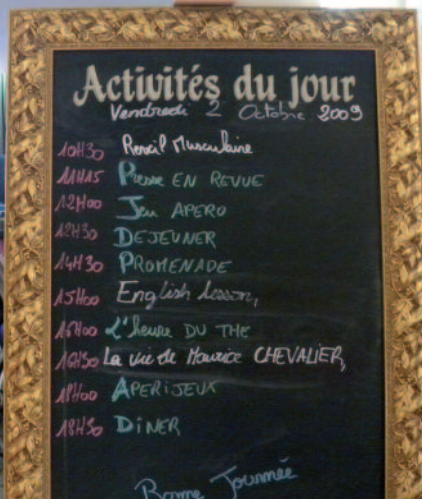 Activités du jour
Vendredi 2 Octobre 2009
10H30 Réveil Musculaire
11H15 Presse EN REVUE
12H00 Jeu APERO
12H30 DEJEUNER
14H30 PROMENADE
15H00 English lesson,
16H00 L'heure DU THE
16H30 La vie de Maurice CHEVALIER,
18H00 APERIJEUX
18H30 DINER
Bonne Journée